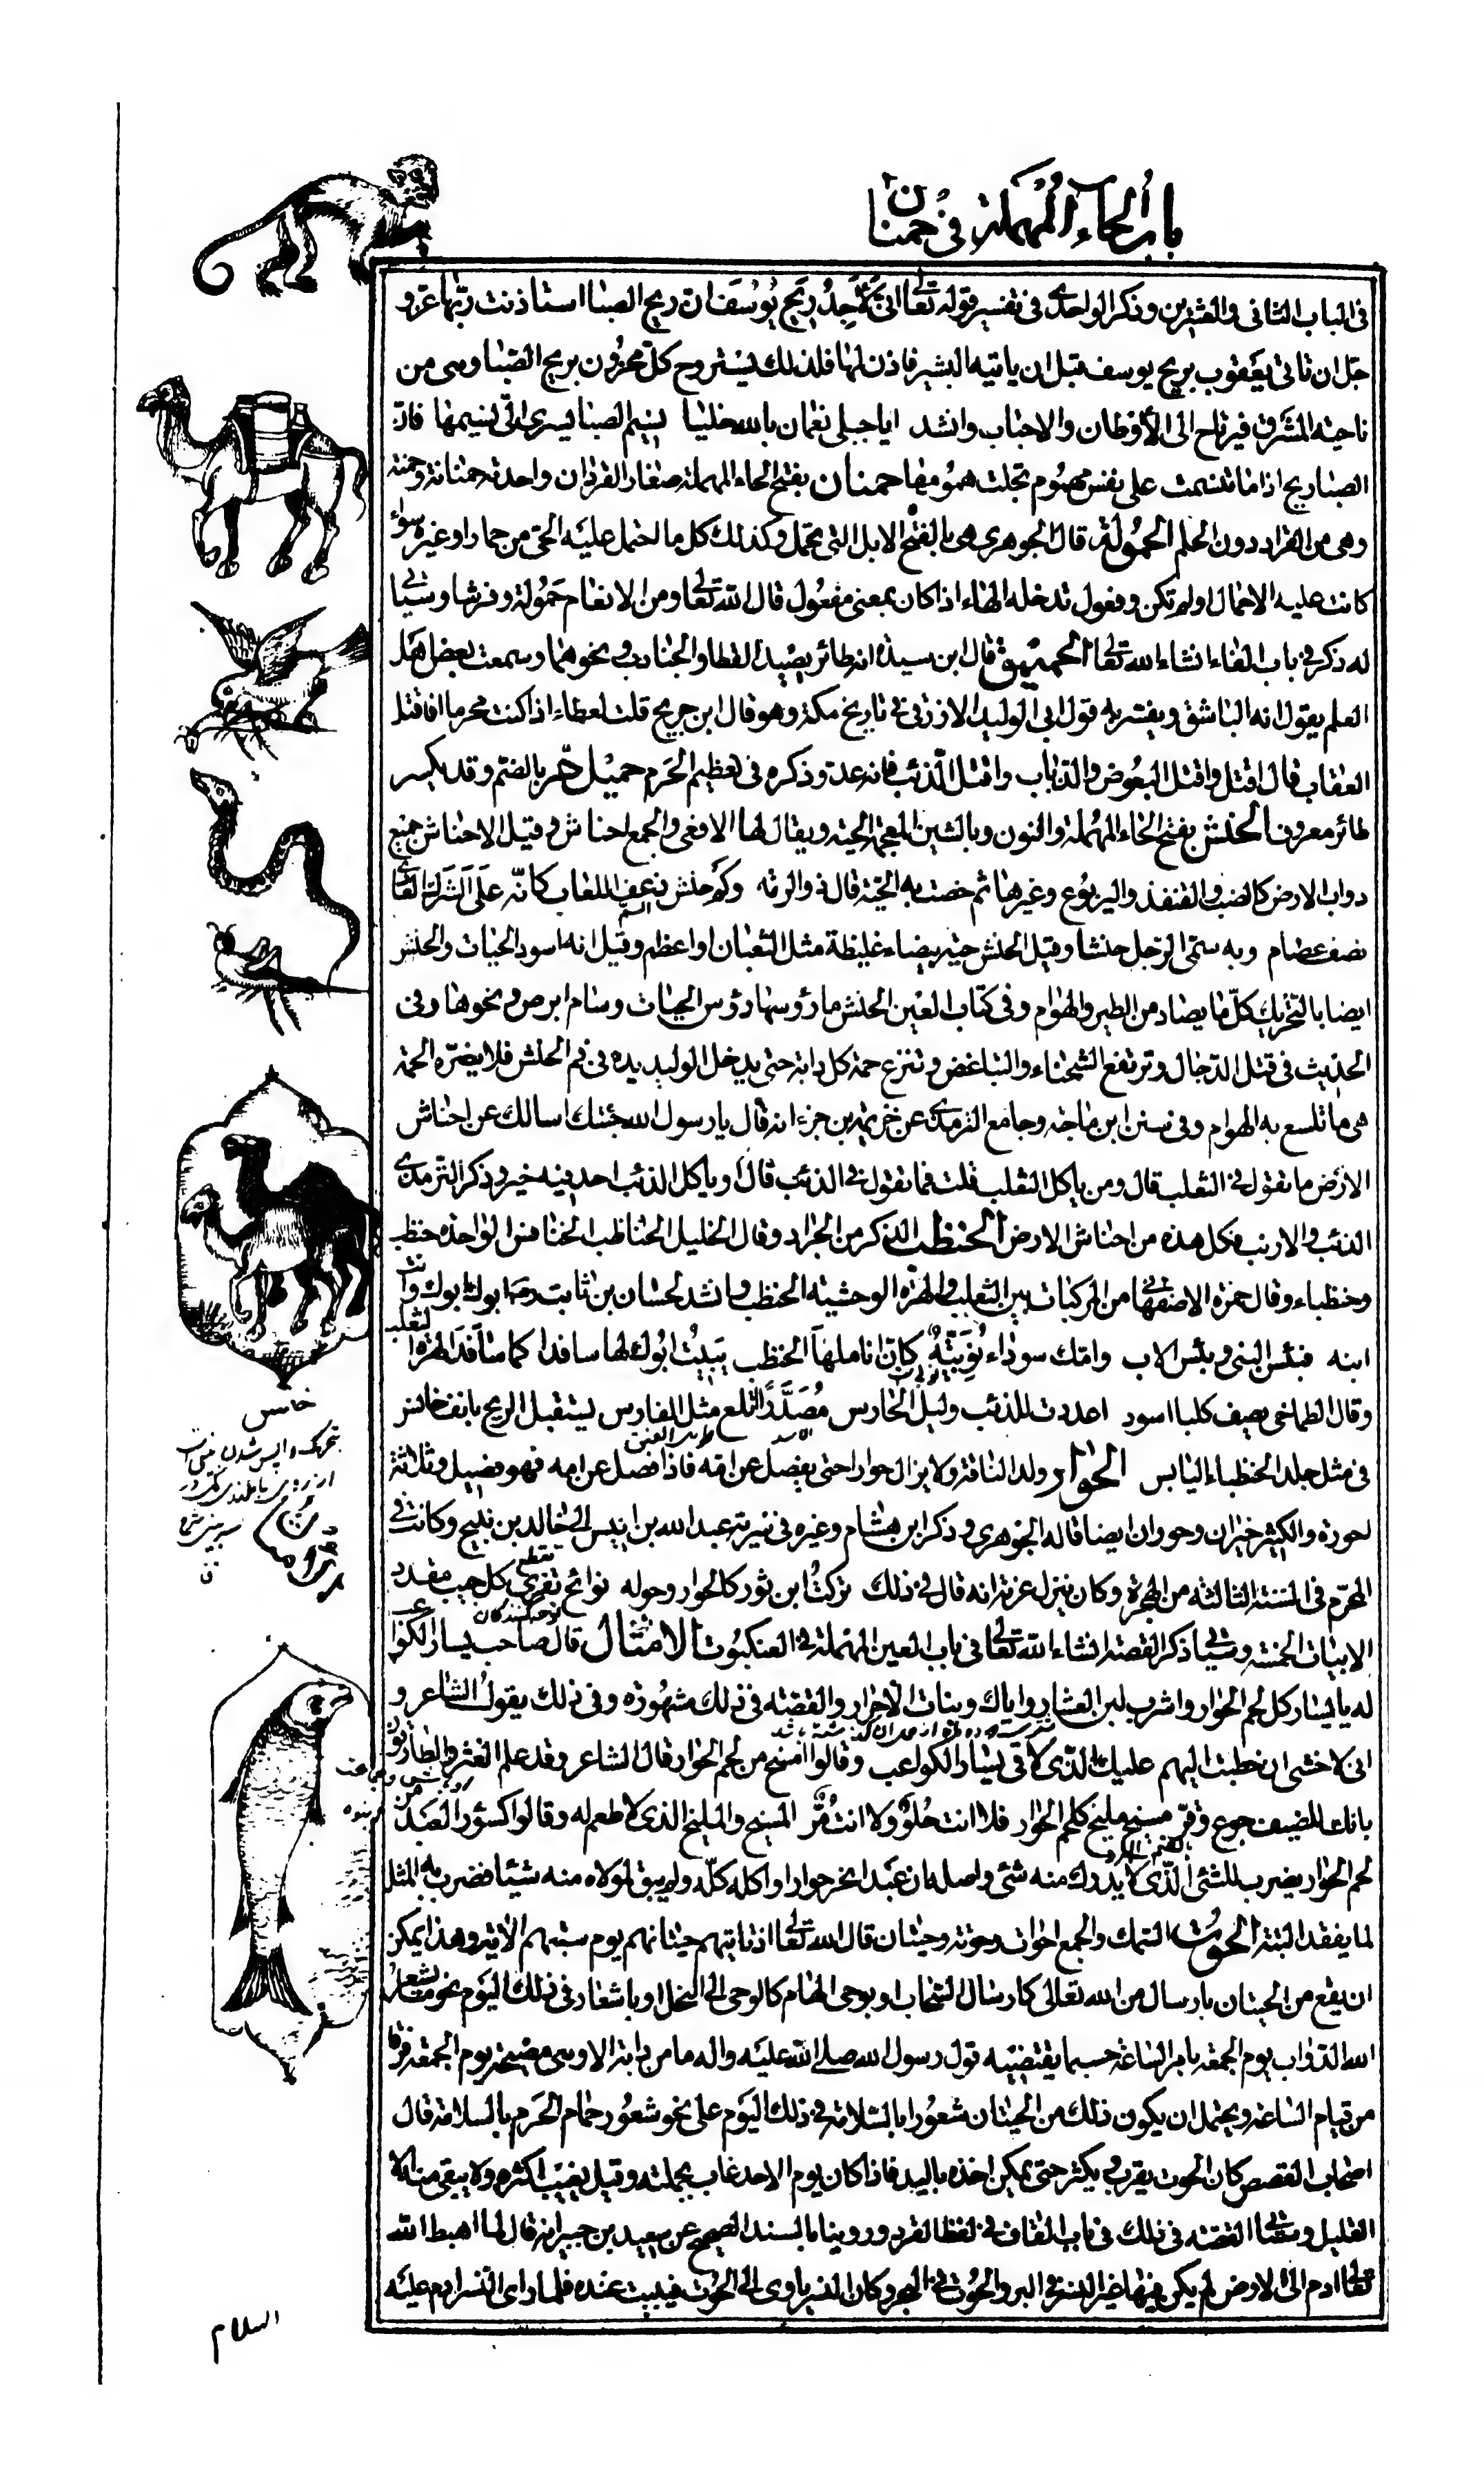 باب الحاء المهملة في حمنان
في الباب الثاني والعشرين وذكر الواحدي في تفسير قوله تعالى اني لاجد ريح يوسف ان ريح الصبا استاذنت ربها عز و
جل ان تاتي يعقوب بريح يوسف قبل ان ياتيه البشير فاذن لها فلذلك يستروح كل محزون بريح الصبا وهي من
ناحية المشرق فيرتاح الى الاوطان والاحباب وانشد ايا جبلي نعمان بالله خليا نسيم الصبا يسري الى نسيمها فان
الصبا ريح اذا ما تنسمت على نفس مهموم تجلت همومها حمنان بفتح الحاء المهملة صغار القردان واحدته حمنانة وحمنة
وهي من القراد دون الحلم الحمولة قال الجوهري هي بالفتح الابل التي تحمل وكذلك كل ما احتمل عليه الحي من حمار او غيره سواء
كانت عليه الاحمال او لم تكن وفعول تدخله الهاء اذا كان بمعنى مفعول قال الله تعالى ومن الانعام حمولة وفرشا وسياتي
له ذكر في باب الفاء انشاء الله تعالى الحميمق قال ابن سيدة انه طائر يصيد القطا والجنادب ونحوهما وسمعت بعض اهل
العلم يقول انه الباشق ويفسر به قول ابي الوليد الازرقي في تاريخ مكة وهو قال ابن جريج قلت لعطاء اذا كنت محرما افاقتل
العقاب قال اقتل واقتل البعوض والذباب واقتل الذئب فانه عدو وذكره في تعظيم الحرم حميل حر بالضم وقد يكسر
طائر معروف الحنش بفتح الحاء المهملة والنون وبالشين المعجمة الحية ويقال لها الافعى والجمع احناش وقيل الاحناش جميع
دواب الارض كالضب والقنفذ واليربوع وغيرها ثم خصت به الحية قال ذو الرمة وكم حنش ذعف اللعاب كانه على الشرك العادي
نضف عصام وبه سمي الرجل حنشا وقيل الحنش حية بيضاء غليظة مثل الثعبان او اعظم وقيل انه اسود الحيات والحنش
ايضا بالتحريك كل ما يصاد من الطير والهوام وفي كتاب العين الحنش ما رؤوسها رؤس الحيات وسام ابرص ونحوها وفي
الحديث في قتل الدجال وترتفع الشحناء والتباغض وتنزع حمة كل دابة حتى يدخل الوليد يده في فم الحنش فلا يضره الحمة
هي ما تلسع به الهوام وفي سنن ابن ماجه وجامع الترمذي عن خزيمة بن جزء انه قال يا رسول الله جئتك اسالك عن احناش
الارض ما تقول في الثعلب قال ومن ياكل الثعلب قلت فما تقول في الذئب قال او ياكل الذئب احد فيه خير وذكر الترمذي
الذئب والارنب فكل هذه من احناش الارض الحنظب الذكر من الجراد وقال الخليل الحناظب الخنافس الواحدة حنظب
وحنظباء وقال حمزة الاصفهاني من المركبات بين الثعلب والهرة الوحشية الحنظب وانشد لحسان بن ثابت رضه ابوك ابوك وانت
ابنه فبئس البني وبئس الاب وامك سوداء نوبية كان اناملها الحنظب يبيت ابوك لها سافدا كما سافد الهرة الثعلب
وقال الطماخي يصف كلبا اسود اعددت للذئب وليل الحارس مصدرا اتلع مثل الفارس يستقبل الريح بانف خانس
في مثل جلد الحنظباء اليابس الحوار ولد الناقة ولا يزال حوارا حتى يفصل عن امه فاذا فصل عن امه فهو فصيل وثلاثة
احورة والكثير حيران وحوران ايضا قاله الجوهري وذكر ابن هشام وغيره في سرية عبد الله بن انيس الى خالد بن نبيح وكانت في
المحرم في السنة الثالثة من الهجرة وكان ينزل عرنة انه قال في ذلك تركت ابن ثور كالحوار وحوله نوائح تفري كل جيب مقدد
الابيات الخمسة وسياتي ذكر القصة انشاء الله تعالى في باب العين المهملة في العنكبوت الامثال قال صاحب يسار الكواعب
له يا يسار كل لحم الحوار واشرب لبن العشار واياك وبنات الاحرار والقصة في ذلك مشهورة وفي ذلك يقول الشاعر و
اني لاخشى ان خطبت اليهم عليك الذي لاقى يسار الكواعب وقالوا امسخ من لحم الحوار قال الشاعر وقد علم الغثر والطارقون
بانك للضيف جوع وقر مسيخ مليخ كلحم الحوار فلا انت حلو ولا انت مر المسيخ والمليخ الذي لا طعم له وقالوا كسؤر العبد من
لحم الحوار يضرب للشئ الذي لا يدرك منه شئ واصله ان عبدا نحر حوارا واكله كله ولم يبق لمولاه منه شيئا فضرب به المثل
لما يفقد البتة الحوت السمك والجمع احوات وحوتة وحيتان قال الله تعالى اذ تاتيهم حيتانهم يوم سبتهم الاية وهذا يمكن
ان يقع من الحيتان بارسال من الله تعالى كارسال السحاب او بوحي الهام كالوحي الى النحل او باشعار في ذلك اليوم نحو اشعار
الله الدواب يوم الجمعة بامر الساعة حسبما يقتضيه قول رسول الله صلى الله عليه واله ما من دابة الا وهي مصيخة يوم الجمعة فرقا
من قيام الساعة ويحتمل ان يكون ذلك من الحيتان شعورا بالسلامة في ذلك اليوم على نحو شعور حمام الحرم بالسلامة قال
اصحاب القصص كان الحوت يقرب ويكثر حتى يمكن اخذه باليد فاذا كان يوم الاحد غاب بجملته وقيل يغيب اكثره ولا يبقى منه الا
القليل وستاتي القصة في ذلك في باب القاف في لفظ القرد وروينا بالسند الصحيح عن سعيد بن جبير انه قال لما اهبط الله
تعالى ادم الى الارض لم يكن فيها غير النسر في البر والحوت في البحر وكان النسر ياوي الى الحوت فيبيت عنده فلما راى النسر ادم عليه
السلام
خانس